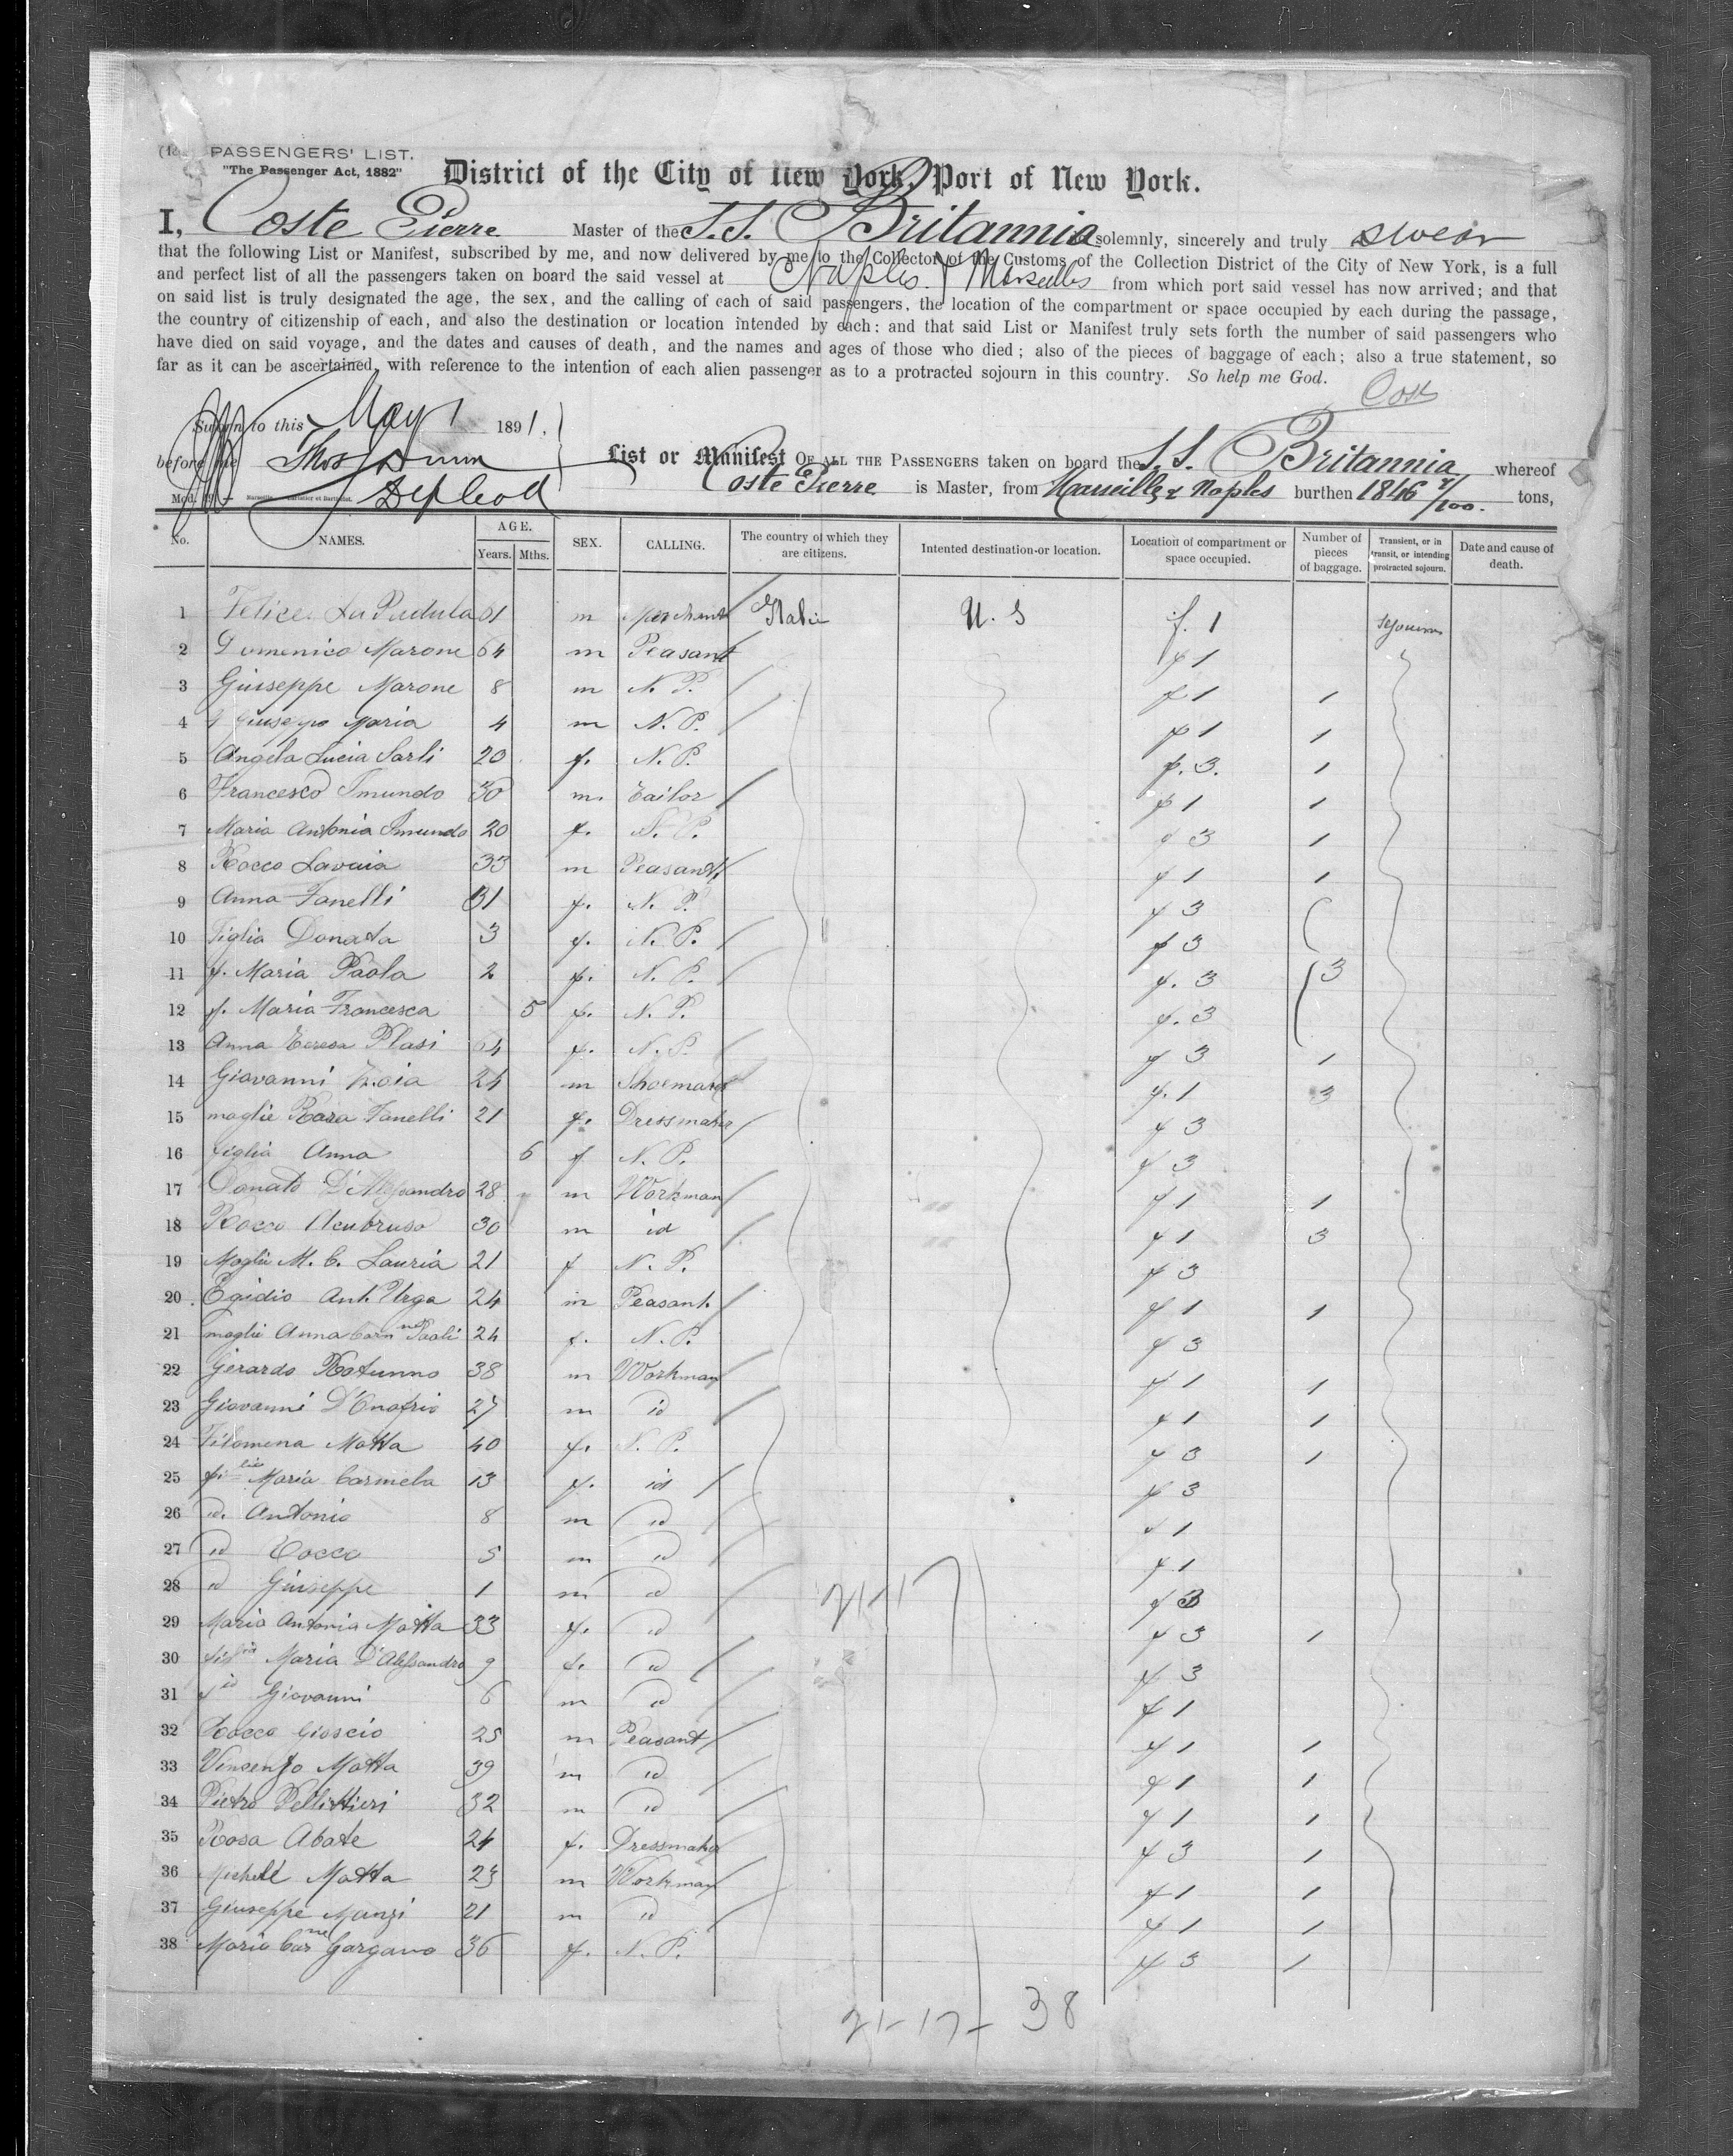 PASSENGERS' LIST.
"The Passenger Act, 1882"
District of the City of New York, Port of New York.
I, Coste Pierre Master of the S.S. Britannia solemnly, sincerely and truly swear
that the following List or Manifest, subscribed by me, and now delivered by me to the Collector of the Customs of the Collection District of the City of New York, is a full
and perfect list of all the passengers taken on board the said vessel at Naples & Marseilles from which port said vessel has now arrived; and that
on said list is truly designated the age, the sex, and the calling of each of said passengers, the location of the compartment or space occupied by each during the passage,
the country of citizenship of each, and also the destination or location intended by each: and that said List or Manifest truly sets forth the number of said passengers who
have died on said voyage, and the dates and causes of death, and the names and ages of those who died; also of the pieces of baggage of each; also a true statement, so
far as it can be ascertained, with reference to the intention of each alien passenger as to a protracted sojourn in this country. So help me God.
Sworn to this May 1 1891.
before me Thos Dunn
List or Manifest OF ALL THE PASSENGERS taken on board the S.S. Britannia whereof
Coste Pierre is Master, from Marseille & Naples burthen 1846 /100. tons,
No. NAMES. AGE. Years. Mths. SEX. CALLING. The country of which they are citizens. Intented destination or location. Location of compartment or space occupied. Number of pieces of baggage. Transient, or in transit, or intending protracted sojourn. Date and cause of death.
1 Felice La Padula 31 m Merchant Italie U. S f. 1 sejourns
2 Domenico Marone 64 m Peasant f 1
3 Giuseppe Marone 8 m N. P. f 1 1
4 Giuseppe Maria 4 m N. P. f 1 1
5 Angela Lucia Sarli 20 f. N. P. f. 3. 1
6 Francesco Imundo 30 m. Tailor f 1 1
7 Maria Antonia Imundo 20 f. N. P. f 3 1
8 Rocco Lavaia 33 m Peasant f 1 1
9 Anna Fanelli 31 f. N. P. f 3
10 Figlia Donata 3 f. N. P. f 3
11 f. Maria Paola 2 f. N. P. f. 3 3
12 f. Maria Francesca 5 f. N. P. f. 3
13 Anna Teresa Plasi 64 f. N. P. f 3 1
14 Giovanni 24 m Shoemaker f. 1 3
15 moglie Rosa Fanelli 21 f. Dressmaker f 3
16 figlia Anna 6 f N. P. f 3
17 Donato D'Alessandro 28 m Workman f 1 1
18 Rocco 30 m id f 1 3
19 Moglie M. C. Lauria 21 f N. P. f 3
20 Egidio Ant. Urga 24 m Peasant. f 1 1
21 moglie Anna Carmne Paoli 24 f. N. P. f 3
22 Gerardo Rotunno 38 m Workman f 1 1
23 Giovanni D'Onofrio 27 m id f 1 1
24 Filomena Matta 40 f. N. P. f 3 1
25 figlia Maria Carmela 13 f. id f 3
26 id. Antonio 8 m id f 1
27 id Rocco 5 m id f 1
28 id Giuseppe 1 m id f 3
29 Maria Antonia Matta 33 f. id f 3 1
30 figlia Maria D'Alessandro 9 f. id f 3
31 f id Giovanni 6 m id f 1
32 Rocco Gioscio 25 m Peasant f 1 1
33 Vincenzo Matta 39 m id f 1 1
34 Pietro Pellittieri 32 m id f 1 1
35 Rosa Abate 24 f. Dressmaker f 3 1
36 Michele Matta 23 m Workman f 1 1
37 Giuseppe Manzi 21 m id f 1 1
38 Maria Carmne Gargano 36 f. N. P. f 3 1
21-17
21-17- 38